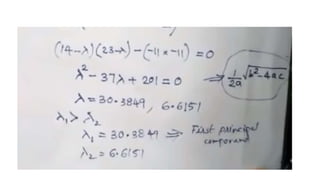 (14-λ)(23-λ)-(-11×-11)=0
λ²-37λ+201=0 ⇒ 1/2a √b²-4ac
λ=30.3849, 6.6151
λ₁>λ₂
λ₁=30.3849 ⇒ First principal component
λ₂=6.6151